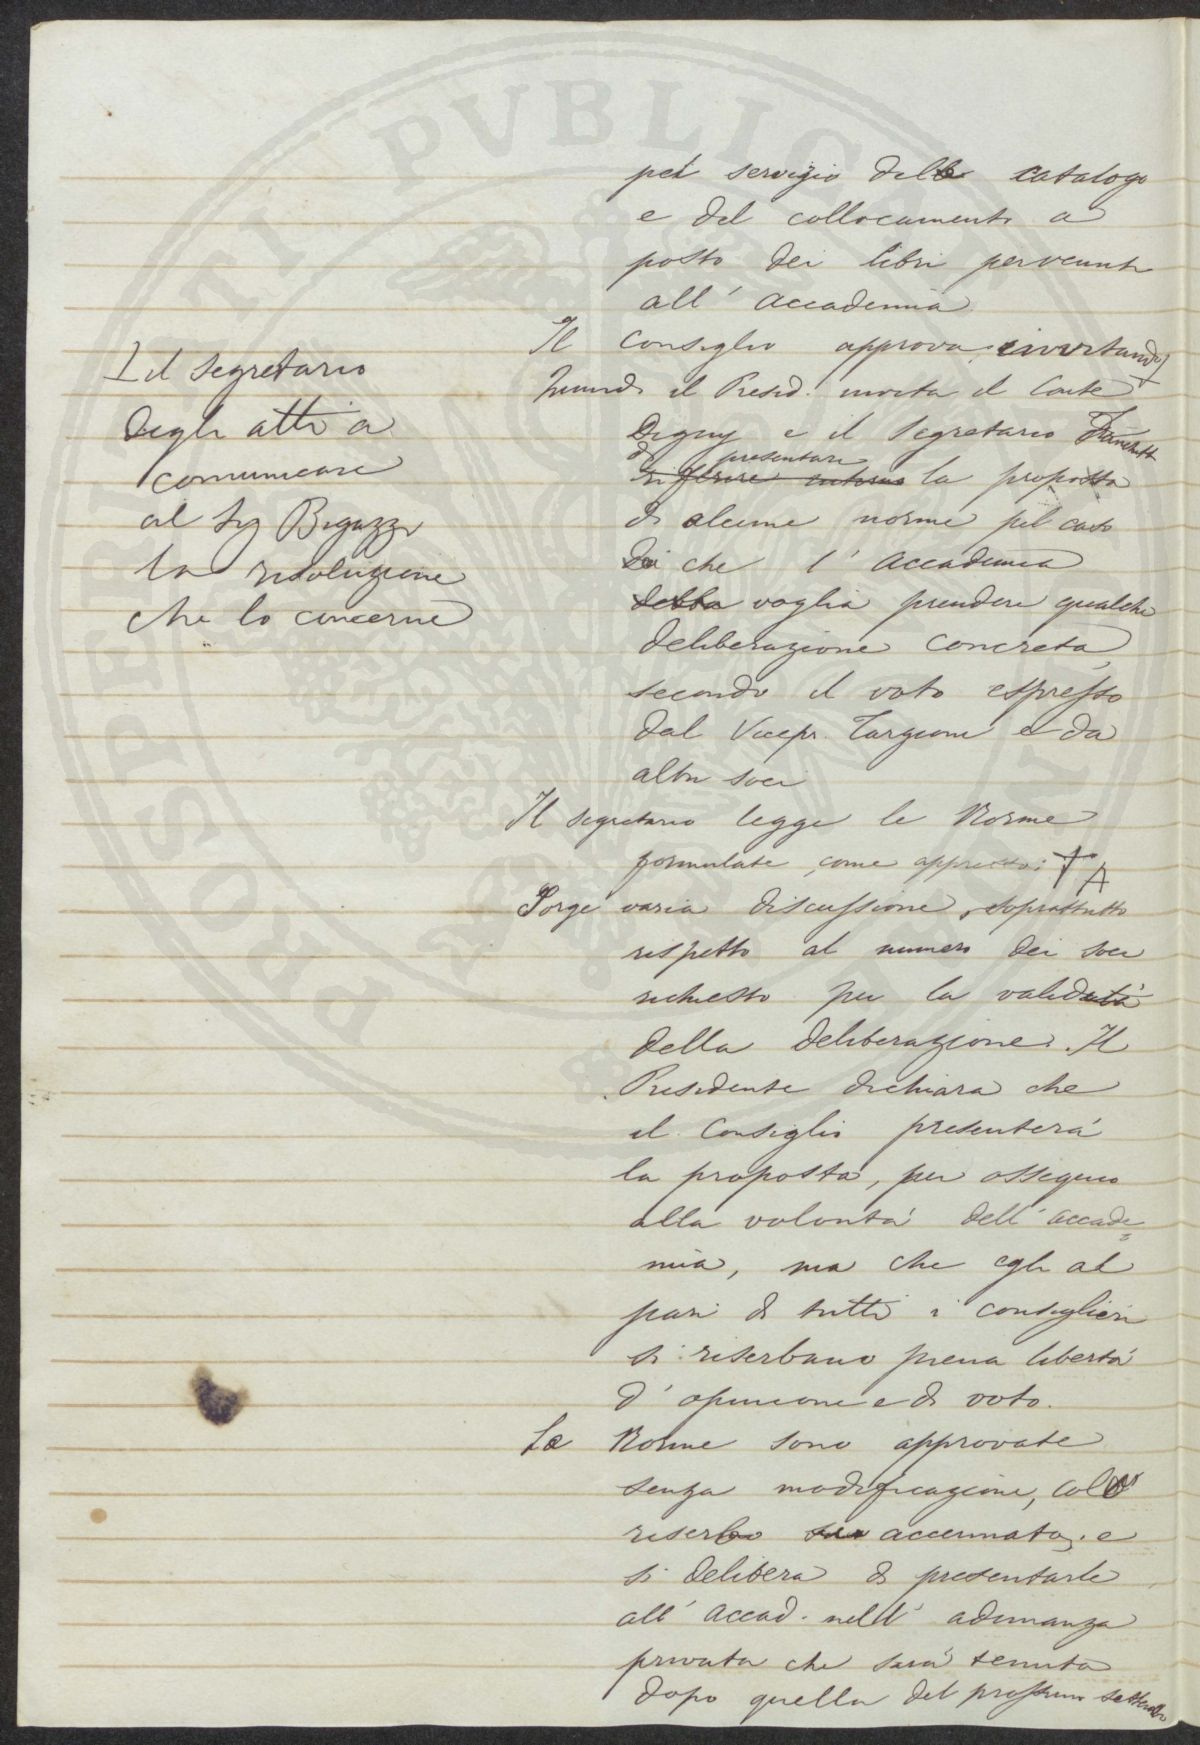 pel servizio del catalogo
e del collocamento a
posto dei libri pervenuti
all' Accademia
Il Consiglio approva, invitando
I il segretario
degli atti a
comunicare
al Sig Bigazzi
la risoluzione
che lo concerne
Quindi il Presid. invita il Conte
Digny e il Segretario Franchetti
di presentare
riferire intorno la proposta
di alcune norme pel caso
che l' Accademia
della voglia prendere qualche
deliberazione concreta,
secondo il voto espresso
dal Vicepr. Targioni e da
altri soci
Il segretario legge le Norme
formulate, come appresso: A
Sorge varia discussione, soprattutto
rispetto al numero dei soci
richiesto per la validità
della deliberazione. Il
Presidente dichiara che
il Consiglio presenterà
la proposta, per ossequio
alla volontà dell' Accade=
mia, ma che egli al
pari di tutti i consiglieri
si riserbano piena libertà
d' opinione e di voto.
Le Norme sono approvate
senza modificazione, colla
riserba accennata, e
si delibera di presentarle
all' Accad. nell' adunanza
privata che sarà tenuta
dopo quella del prossimo settembre
PROSPERITATI PVBLICAE